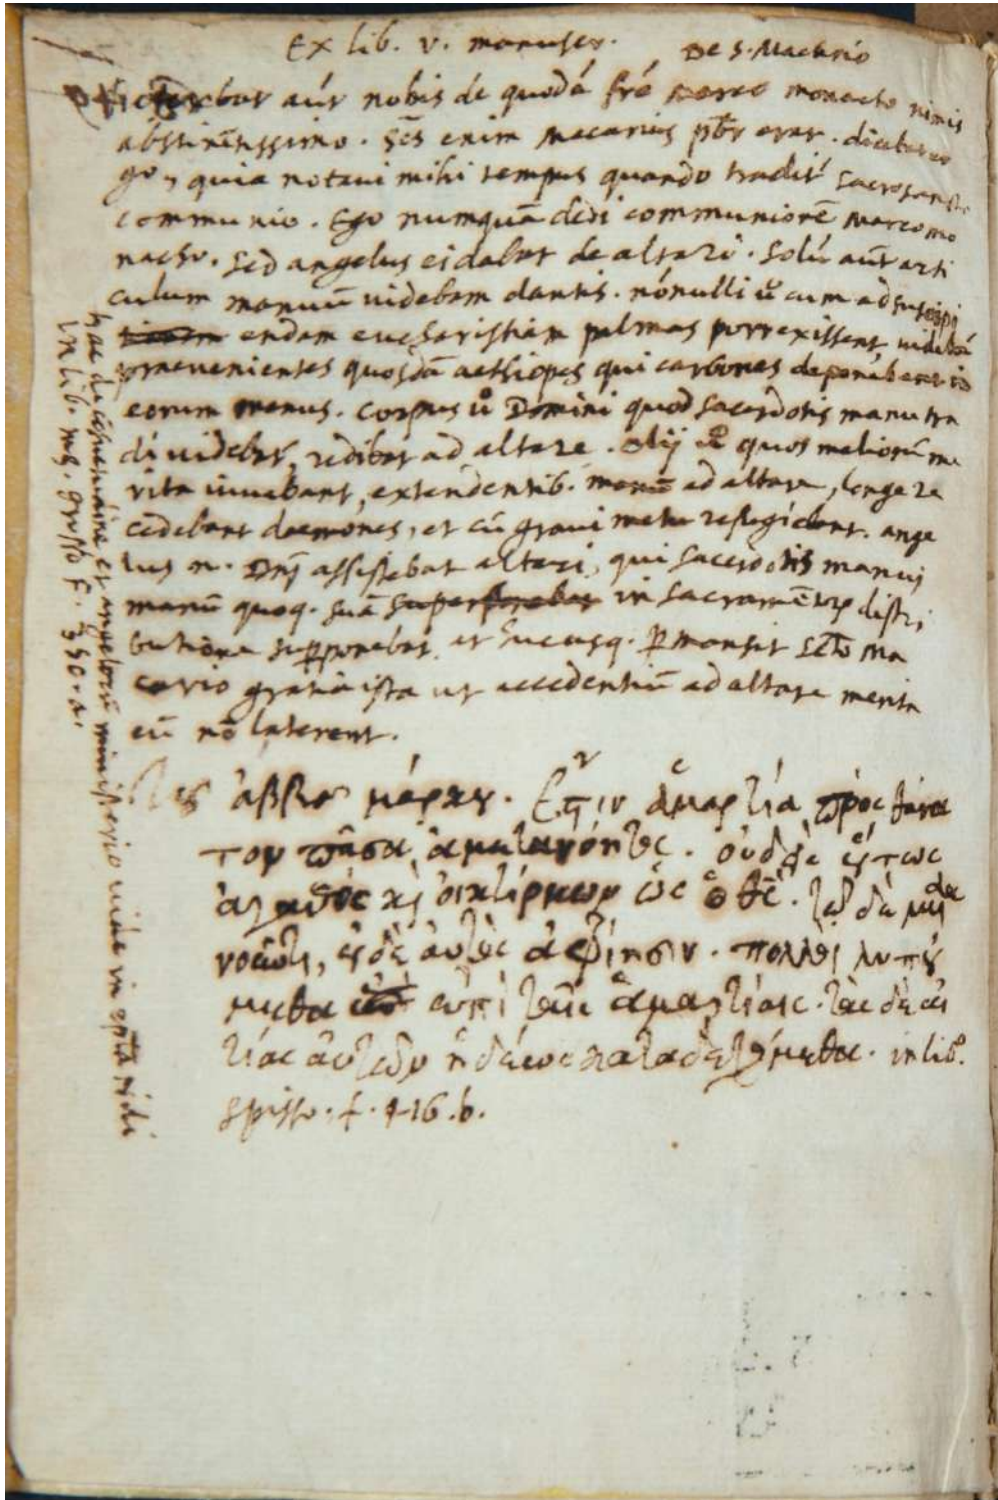 Ex lib. v. manuscr. De S. Macario
aut nobis de quodã frẽ Marco monacho nimis
abstinẽtissimo. Scs enim Macarius pbr erat. dicebat
go, quia notavi mihi tempus quando tradit' sacrosancta
communio. Ego numquã dedi communionẽ Marco mo
nacho. Sed angelus ei dabat de altari. Solũ aũt arti
culum manuũ videbam dantis. nõnulli ũ cum ad suscipi
endam eucharistiam palmas porrexissent, videbã
praevenientes quosdã aethiopes qui carbones deponebant in
eorum manus. Corpus ũ Domini quod sacerdotis manu tra
di videbat, redibat ad altare. Alij quos meliorũ me
rita iuvabant, extendentib. manũ ad altare, longe re
cedebant daemones, et cũ gravi metu refugiebant. ange
lus n. Dnj assistebat altari, qui sacerdotis manuj
manũ quoq. suã superponebat in sacramẽtorum distri
butione supponebat et hucusq. Pmansit scto Ma
cario gratia ista ut accedentiũ ad altare merita
eũ nõ laterent.
hac de consuetudine et angelorũ ministerio vide in
in lib. ms. grosso f. 350. a.
τȣ ἀββᾶ μάρκȣ. Ἔστιν ἁμαρτία πρὸς θάνα
τον πᾶσα ἀμετανόητος. οὐδεὶς ȣ̔́τως
ἀγαθὸς κὶ οἰκτίρμων ὡς ὁ θς̄. τῷ δὲ μὴ
νοȣ͂ντι, ȣ̓δὲ αὐτὸς ἀφίησιν. πολλοὶ λυπȣ́
μεθα ἐπὶ ταῖς ἁμαρτίαις. τὰς δὲ αἰ
τίας αὐτῶν ἡδέως καταδεχόμεθα. in lib.
spisso. f. 116. b.